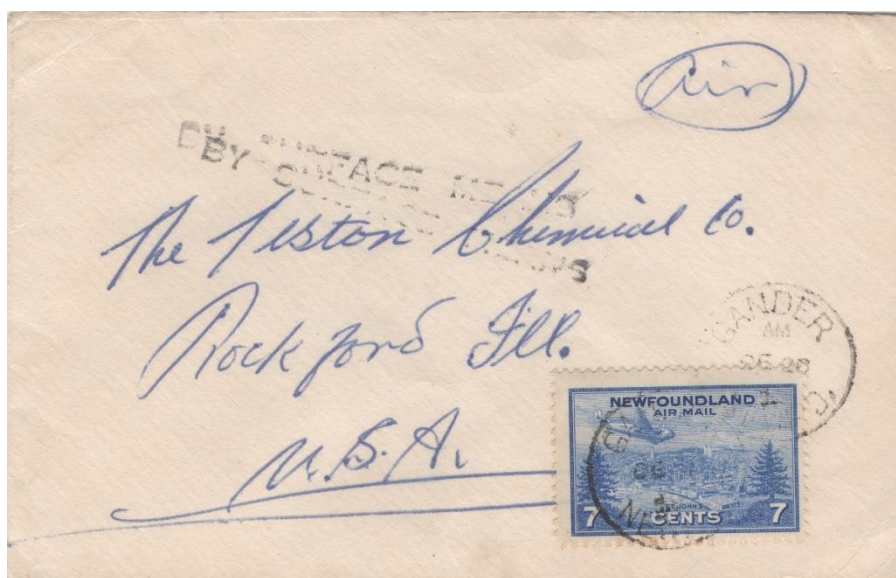 Air
BY SURFACE MEANS
BY SURFACE MEANS
The Teston Chemical Co.
Rockford Ill.
U.S.A.
GANDER
AM
DE 28
NEWFOUNDLAND
AIR MAIL
ST. JOHN'S
7 CENTS 7